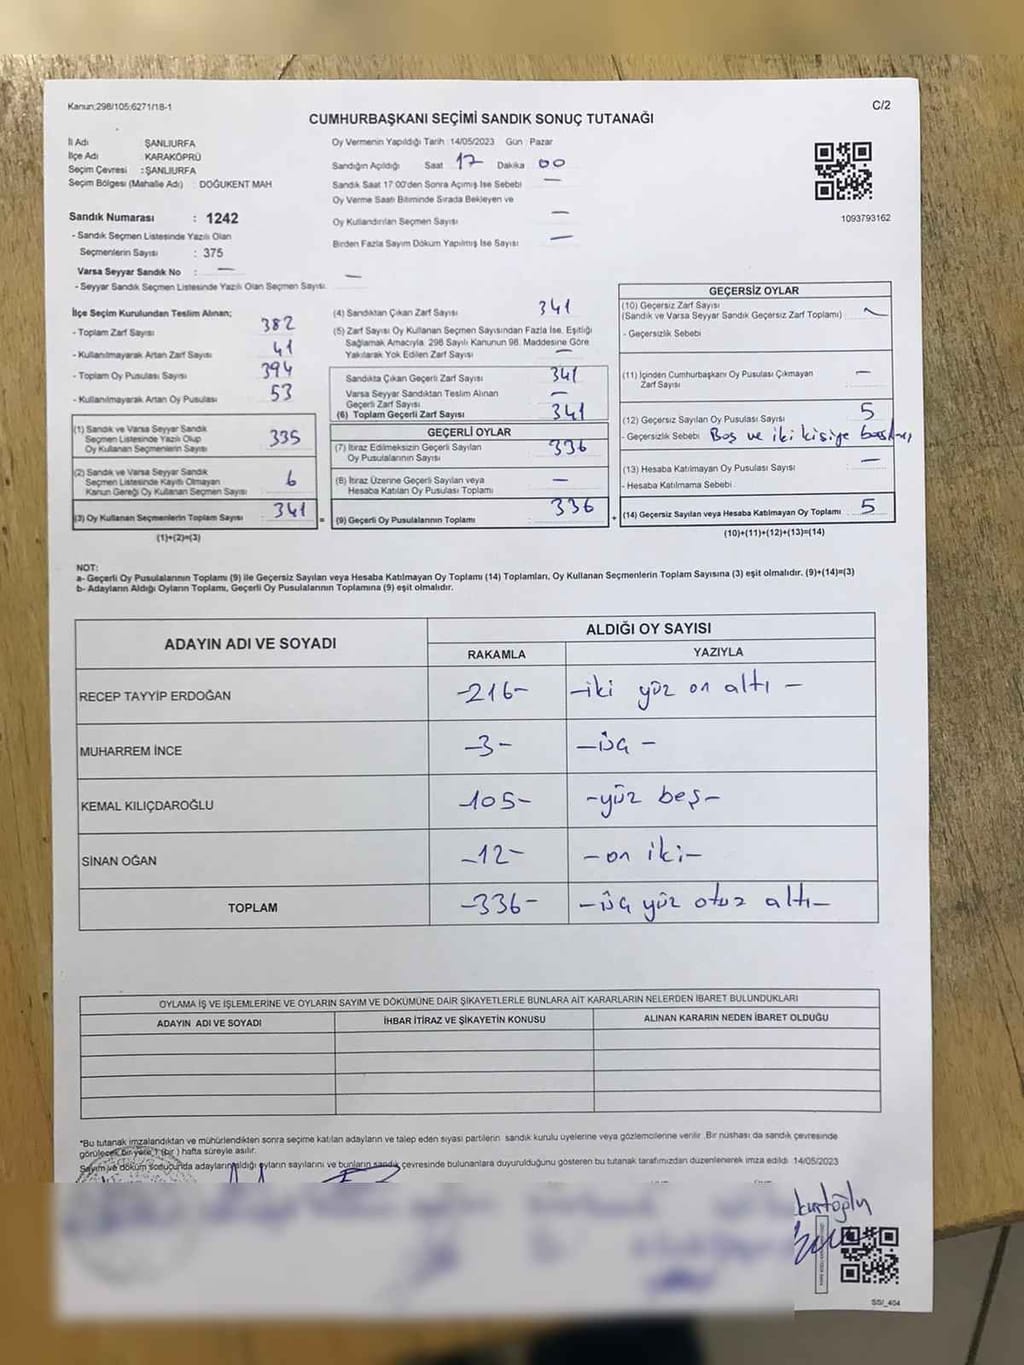 Kanun;298/105;6271/18-1
C/2
CUMHURBAŞKANI SEÇİMİ SANDIK SONUÇ TUTANAĞI
İl Adı ŞANLIURFA
İlçe Adı : KARAKÖPRÜ
Seçim Çevresi : ŞANLIURFA
Seçim Bölgesi (Mahalle Adı) : DOĞUKENT MAH
Sandık Numarası : 1242
- Sandık Seçmen Listesinde Yazılı Olan
Seçmenlerin Sayısı : 375
Varsa Seyyar Sandık No : —
- Seyyar Sandık Seçmen Listesinde Yazılı Olan Seçmen Sayısı. —
Oy Vermenin Yapıldığı Tarih : 14/05/2023 Gün : Pazar
Sandığın Açıldığı Saat 17 Dakika 00
Sandık Saat 17 00'den Sonra Açımış İse Sebebi —
Oy Verme Saati Bitiminde Sırada Bekleyen ve
Oy Kullandırılan Seçmen Sayısı —
Birden Fazla Sayım Döküm Yapılmış İse Sayısı —
1093793162
İlçe Seçim Kurulundan Teslim Alınan;
- Toplam Zarf Sayısı 382
- Kullanılmayarak Artan Zarf Sayısı 41
- Toplam Oy Pusulası Sayısı 394
- Kullanılmayarak Artan Oy Pusulası 53
(1) Sandık ve Varsa Seyyar Sandık
Seçmen Listesinde Yazılı Olup
Oy Kullanan Seçmenlerin Sayısı 335
(2) Sandık ve Varsa Seyyar Sandık
Seçmen Listesinde Kayıtlı Olmayan
Kanun Gereği Oy Kullanan Seçmen Sayısı 6
(3) Oy Kullanan Seçmenlerin Toplam Sayısı 341
(1)+(2)=(3)
(4) Sandıktan Çıkan Zarf Sayısı 341
(5) Zarf Sayısı Oy Kullanan Seçmen Sayısından Fazla İse, Eşitliği
Sağlamak Amacıyla, 298 Sayılı Kanunun 98. Maddesine Göre
Yakılarak Yok Edilen Zarf Sayısı —
Sandıkta Çıkan Geçerli Zarf Sayısı 341
Varsa Seyyar Sandıktan Teslim Alınan
Geçerli Zarf Sayısı —
(6) Toplam Geçerli Zarf Sayısı 341
GEÇERLİ OYLAR
(7) İtiraz Edilmeksizin Geçerli Sayılan
Oy Pusulalarının Sayısı 336
(8) İtiraz Üzerine Geçerli Sayılan veya
Hesaba Katılan Oy Pusulası Toplamı —
= (9) Geçerli Oy Pusulalarının Toplamı 336
GEÇERSİZ OYLAR
(10) Geçersiz Zarf Sayısı
(Sandık ve Varsa Seyyar Sandık Geçersiz Zarf Toplamı) —
- Geçersizlik Sebebi
(11) İçinden Cumhurbaşkanı Oy Pusulası Çıkmayan
Zarf Sayısı —
(12) Geçersiz Sayılan Oy Pusulası Sayısı 5
- Geçersizlik Sebebi Boş ve iki kişiye
(13) Hesaba Katılmayan Oy Pusulası Sayısı —
- Hesaba Katılmama Sebebi
+ (14) Geçersiz Sayılan veya Hesaba Katılmayan Oy Toplamı 5
(10)+(11)+(12)+(13)=(14)
NOT:
a- Geçerli Oy Pusulalarının Toplamı (9) ile Geçersiz Sayılan veya Hesaba Katılmayan Oy Toplamı (14) Toplamları, Oy Kullanan Seçmenlerin Toplam Sayısına (3) eşit olmalıdır. (9)+(14)=(3)
b- Adayların Aldığı Oyların Toplamı, Geçerli Oy Pusulalarının Toplamına (9) eşit olmalıdır.
ADAYIN ADI VE SOYADI
ALDIĞI OY SAYISI
RAKAMLA YAZIYLA
RECEP TAYYİP ERDOĞAN -216- -iki yüz on altı-
MUHARREM İNCE -3- -üç-
KEMAL KILIÇDAROĞLU -105- -yüz beş-
SİNAN OĞAN -12- -on iki-
TOPLAM -336- -üç yüz otuz altı-
OYLAMA İŞ VE İŞLEMLERİNE VE OYLARIN SAYIM VE DÖKÜMÜNE DAİR ŞİKAYETLERLE BUNLARA AİT KARARLARIN NELERDEN İBARET BULUNDUKLARI
ADAYIN ADI VE SOYADI İHBAR İTİRAZ VE ŞİKAYETİN KONUSU ALINAN KARARIN NEDEN İBARET OLDUĞU
*Bu tutanak imzalandıktan ve mühürlendikten sonra seçime katılan adayların ve talep eden siyasi partilerin sandık kurulu üyelerine veya gözlemcilerine verilir. Bir nüshası da sandık çevresinde
görülecek bir yere 1 (bir) hafta süreyle asılır.
Sayım ve döküm sonucunda adayların aldığı oyların sayılarını ve bunların sandık çevresinde bulunanlara duyurulduğunu gösteren bu tutanak tarafımızdan düzenlenerek imza edildi 14/05/2023
kurtoğlu
SSI_404